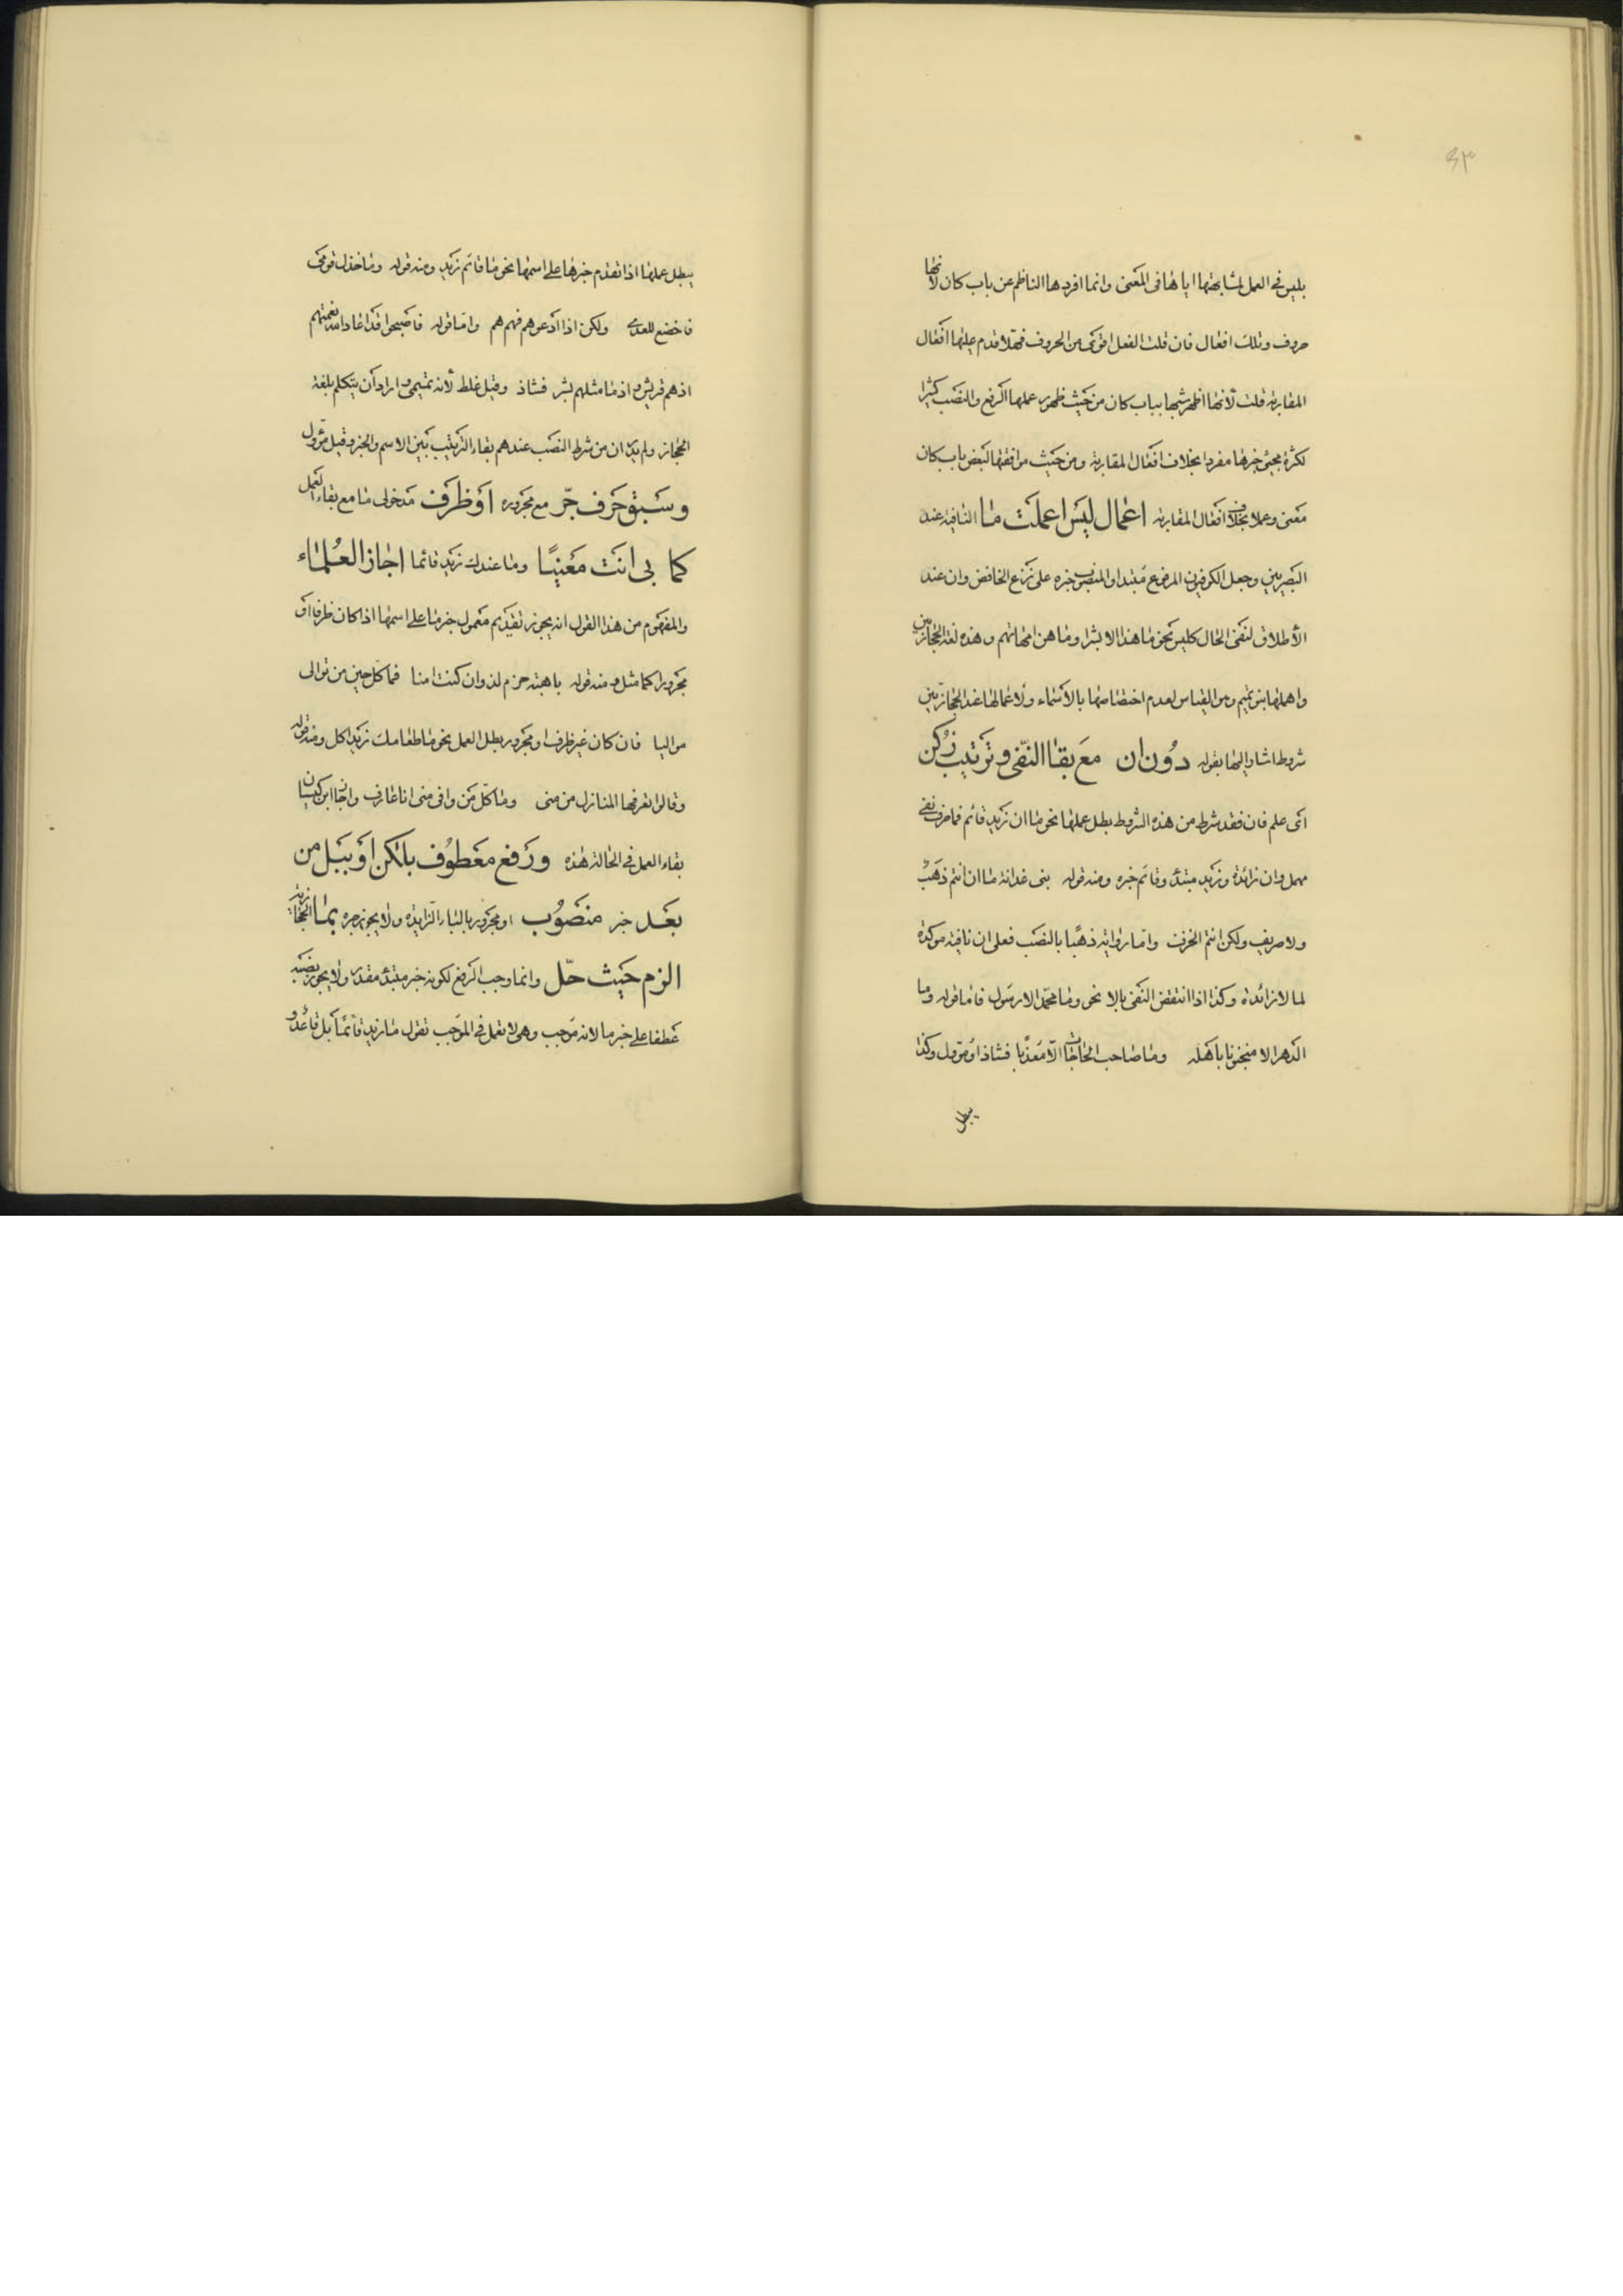 ٤٣
بليس في العمل لمشابهتها اياها في المعنى وانما افردها الناظم عن باب كان لانها
حروف وتلك افعال فان قلت الفعل اقوى من الحروف فهلا قدم عليها افعال
المقاربة قلت لأنها اظهر شبها بباب كان من حيث ظهور عملها الرفع والنصب كثيرا
لكثرة مجيئ خبرها مفردا بخلاف افعال المقاربة ومن حيث موافقتها لبعض باب كان
معنى وعملا بخلاف افعال المقاربة اعمال ليس اعملت ما النافية عند
البصريين وجعل الكوفيون المرفوع مبتدا والمنصوب خبره على نزع الخافض وان عند
الأطلاق لنفى الحال كليس نحو ما هذا الا بشرا وما هن امهاتهم وهذه لغة الحجازيين
واهملها بنو تميم وهو القياس لعدم اختصاصها بالأسماء ولاعمالها عند الحجازيين
شروط اشار اليها بقوله دون ان مع بقا النفى وترتيب زكن
اى علم فان فقد شرط من هذه الشروط بطل عملها نحو ما ان زيد قائم فما حرف نفى
مهمل وان زائدة وزيد مبتدأ وقائم خبره ومنه قوله بنى غدانة ما ان انتم ذهب
ولا صريف ولكن انتم الخزف واما رواية ذهبا بالنصب فعلى ان نافية موكدة
لما لا زائدة وكذا اذا انتقض النفى بالا نحو وما محمد الا رسول فاما قوله وما
الدهر الا منجنونا بأهله وما صاحب الحاجات الا معذبا فشاذ او مؤول وكذا
يبطل
يبطل عملها اذا تقدم خبرها على اسمها نحو ما قائم زيد ومنه قوله وما خذل قومى
فاخضع للعدى ولكن اذا ادعوهم فهم هم واما قوله فاصبحوا قد اعاد الله نعمتهم
اذ هم قريش واذ ما مثلهم بشر فشاذ وقيل غلط لأنه تميمى واراد ان يتكلم بلغة
الحجاز ولم يدر ان من شرط النصب عندهم بقاء الترتيب بين الاسم والخبر وقيل مؤول
وسبق حرف جر مع مجروره او ظرف مدخولى ما مع بقاء العمل
كما بى انت معنيا وما عندك زيد قائما اجاز العلماء
والمفهوم من هذا القول انه يجوز تقديم معمول خبر ما على اسمها اذا كان ظرفا او
مجرورا كما مثل ومنه قوله باهبة حزم لذ وان كنت امنا فما كل حين من توالى
مواليا فان كان غير ظرف او مجرور بطل العمل نحو ما طعامك زيد اكل ومنه قوله
وقالوا تعرفها المنازل من منى وما كل من وافى منى انا عارف واجاز ابن كيسان
بقاء العمل في الحالة هذه ورفع معطوف بلكن او ببل من
بعد خبر منصوب او مجرور بالباء الزايدة ولا يجوز جره بما الحجازية
الزم حيث حل وانما وجب الرفع لكونه خبر مبتدأ مقدر ولا يجوز نصبه
عطفا على خبر ما لانه موجب وهى لا تعمل في الموجب تقول ما زيد قائما بل قاعد و